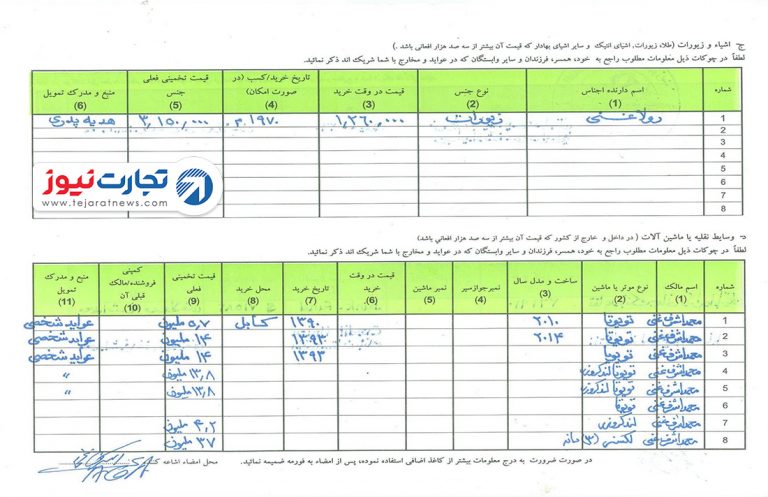 ج- اشیاء و زیورات (طلا، زیورات، اشیای انتیک و سایر اشیای بهادار که قیمت آن بیشتر از سه صد هزار افغانی باشد.)
لطفاً در چوکات ذیل معلومات مطلوب راجع به خود، همسر، فرزندان و سایر وابستگان که در عواید و مخارج با شما شریک اند ذکر نمائید.
شماره اسم دارنده اجناس (1) نوع جنس (2) قیمت در وقت خرید (3) تاریخ خرید/کسب (در صورت امکان) (4) قیمت تخمینی فعلی جنس (5) منبع و مدرک تمویل (6)
1 رولا غنی زیورات ۱,۲۶۰,۰۰۰ ۱۹۷۰م ۳,۱۵۰,۰۰۰ هدیه پدری
2
3
4
5
6
7
8
تجارت نیوز
www.tejaratnews.com
د- وسایط نقلیه یا ماشین آلات (در داخل و خارج از کشور که قیمت آن بیشتر از سه صد هزار افغانی باشد)
لطفاً در چوکات ذیل معلومات مطلوب راجع به خود، همسر، فرزندان و سایر وابستگان که در عواید و مخارج با شما شریک اند ذکر نمائید.
شماره اسم مالک (1) نوع موتر یا ماشین (2) ساخت و مدل سال (3) نمبر جوازسیر (4) نمبر ماشین (5) قیمت در وقت خرید (6) تاریخ خرید (7) محل خرید (8) قیمت تخمینی فعلی (9) کمپنی فروشنده/مالک قبلی آن (10) منبع و مدرک تمویل (11)
1 محمد اشرف غنی تویوتا ۲۰۱۰ ۱۳۹۰ کابل ۵,۷ ملیون عواید شخصی
2 محمد اشرف غنی تویوتا ۲۰۱۴ ۱۳۹۳ ۱۴ ملیون عواید شخصی
3 محمد اشرف غنی تویوتا ۱۳۹۳ ۱۴ ملیون عواید شخصی
4 محمد اشرف غنی تویوتا لندکروزر ۱۳,۸ ملیون "
5 محمد اشرف غنی تویوتا لندکروزر ۱۳,۸ ملیون "
6 محمد اشرف غنی تویوتا
7 محمد اشرف غنی لندکروزر ۴,۲ ملیون
8 محمد اشرف غنی لکسس (۳) دانه ۳۷ ملیون
در صورت ضرورت به درج معلومات بیشتر از کاغذ اضافی استفاده نموده، پس از امضاء به فورمه ضمیمه نمائید. محل امضاء اشاعه